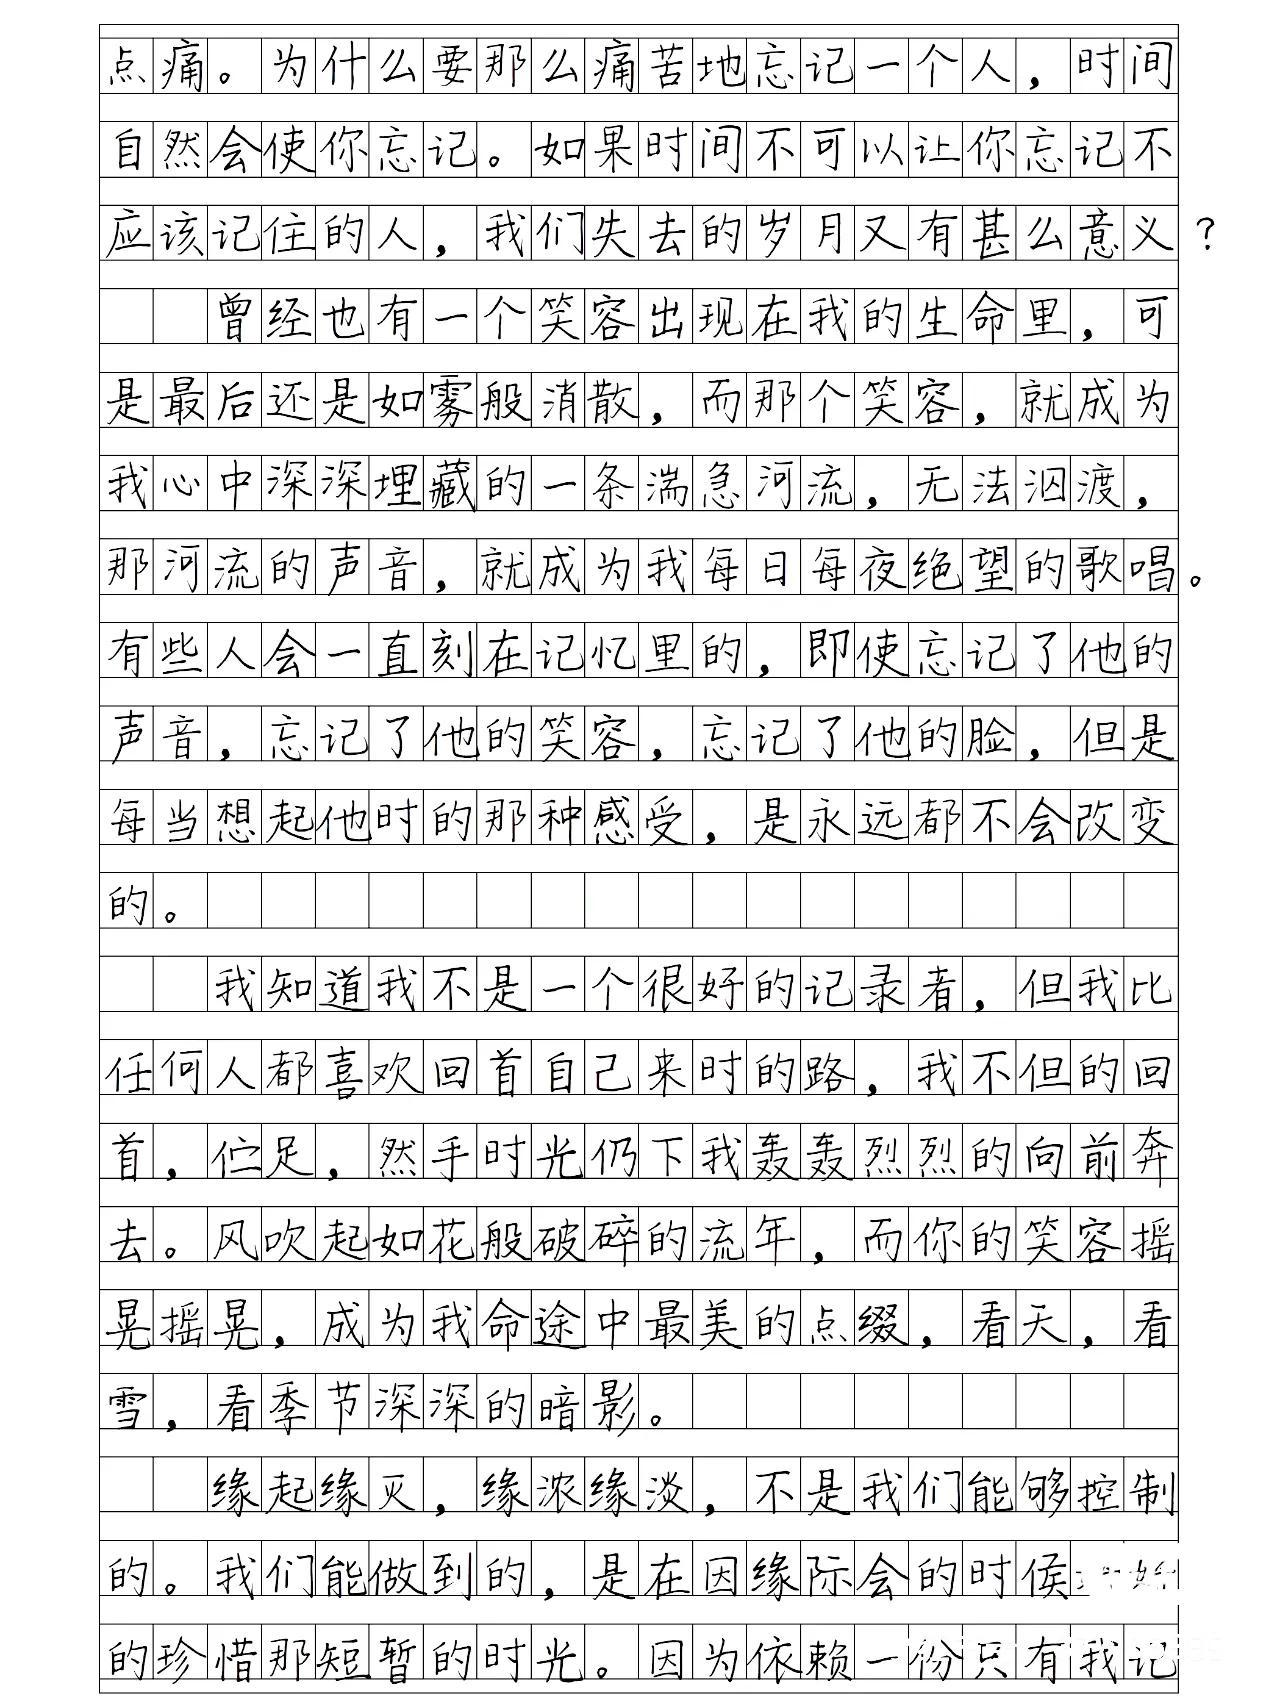 点痛。为什么要那么痛苦地忘记一个人，时间
自然会使你忘记。如果时间不可以让你忘记不
应该记住的人，我们失去的岁月又有甚么意义？
曾经也有一个笑容出现在我的生命里，可
是最后还是如雾般消散，而那个笑容，就成为
我心中深深埋藏的一条湍急河流，无法泅渡，
那河流的声音，就成为我每日每夜绝望的歌唱。
有些人会一直刻在记忆里的，即使忘记了他的
声音，忘记了他的笑容，忘记了他的脸，但是
每当想起他时的那种感受，是永远都不会改变
的。
我知道我不是一个很好的记录者，但我比
任何人都喜欢回首自己来时的路，我不但的回
首，伫足，然手时光仍下我轰轰烈烈的向前奔
去。风吹起如花般破碎的流年，而你的笑容摇
晃摇晃，成为我命途中最美的点缀，看天，看
雪，看季节深深的暗影。
缘起缘灭，缘浓缘淡，不是我们能够控制
的。我们能做到的，是在因缘际会的时侯
的珍惜那短暂的时光。因为依赖一份只有我记